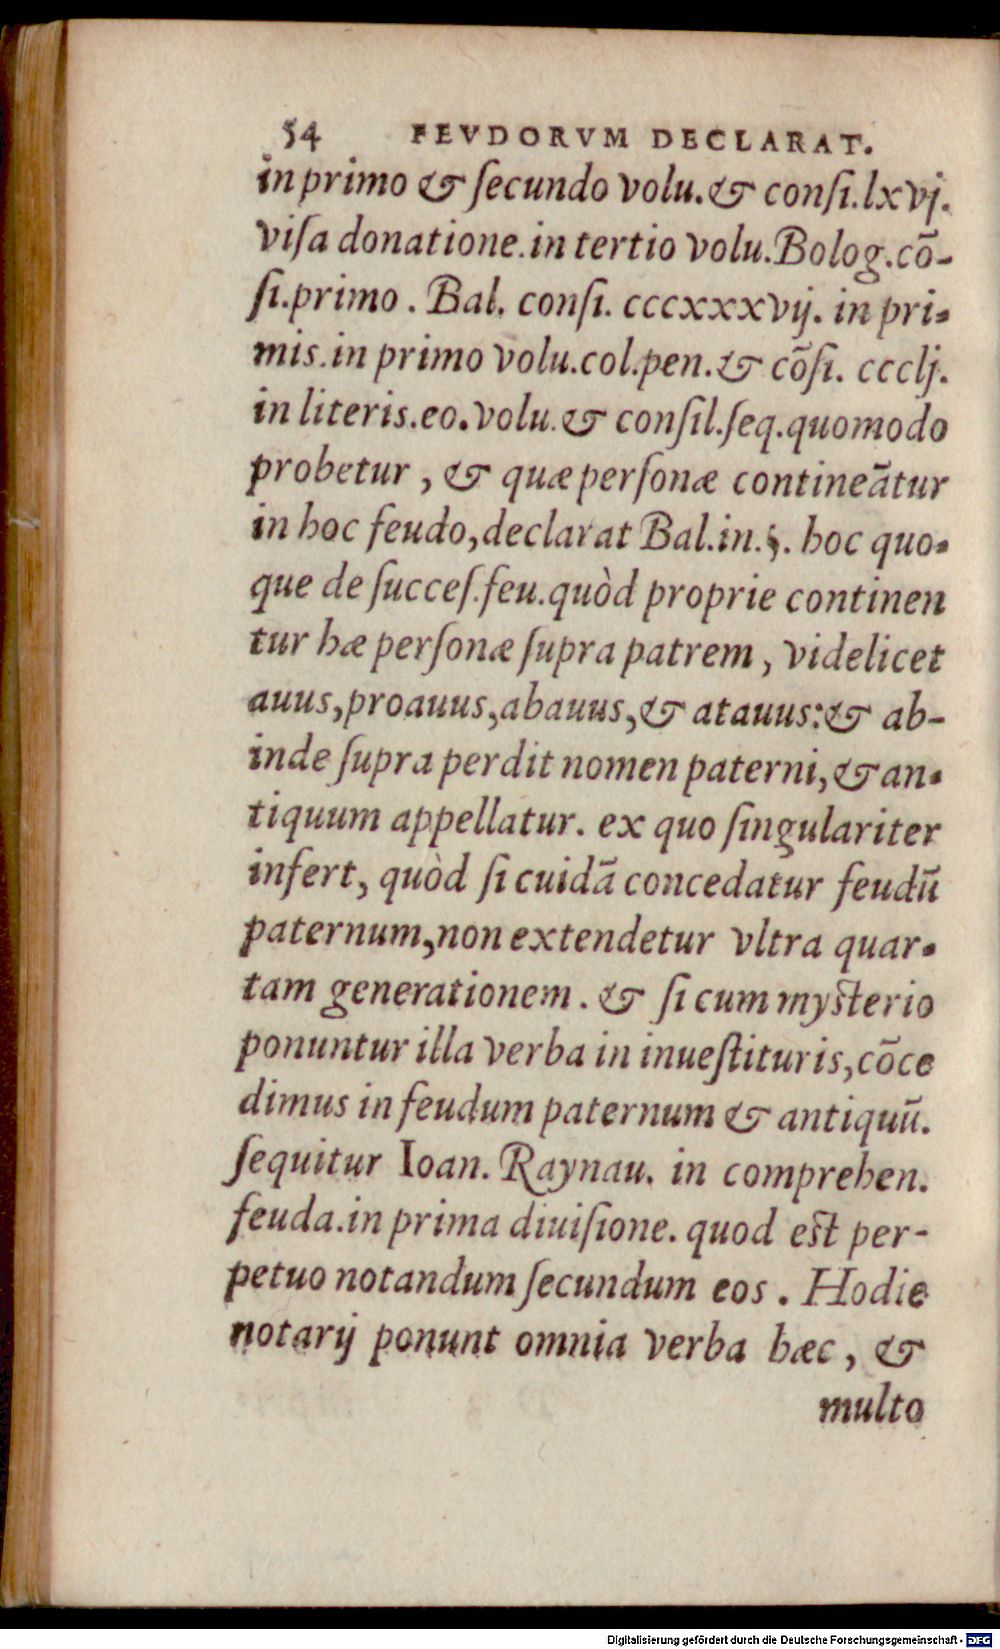 54 FEVDORVM DECLARAT.
in primo & ſecundo volu. & conſi. lxvj.
viſa donatione. in tertio volu. Bolog. cō-
ſi. primo. Bal. conſi. cccxxxvij. in pri-
mis. in primo volu. col. pen. & cōſi. ccclj.
in literis. eo. volu. & conſil. ſeq. quomodo
probetur, & quæ perſonæ contineātur
in hoc feudo, declarat Bal. in. §. hoc quo-
que de ſucceſ. feu. quòd proprie continen
tur hæ perſonæ ſupra patrem, videlicet
auus, proauus, abauus, & atauus: & ab-
inde ſupra perdit nomen paterni, & an-
tiquum appellatur. ex quo ſingulariter
infert, quòd ſi cuidā concedatur feudū
paternum, non extendetur vltra quar-
tam generationem. & ſi cum myſterio
ponuntur illa verba in inueſtituris, cōce
dimus in feudum paternum & antiquū.
ſequitur Ioan. Raynau. in comprehen.
feuda. in prima diuiſione. quod eſt per-
petuo notandum ſecundum eos. Hodie
notarij ponunt omnia verba hæc, &
multo
Digitalisierung gefördert durch die Deutsche Forschungsgemeinschaft - DFG